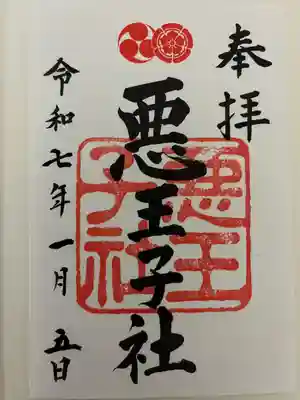 奉拝
悪王子社
悪王子社
令和七年一月五日